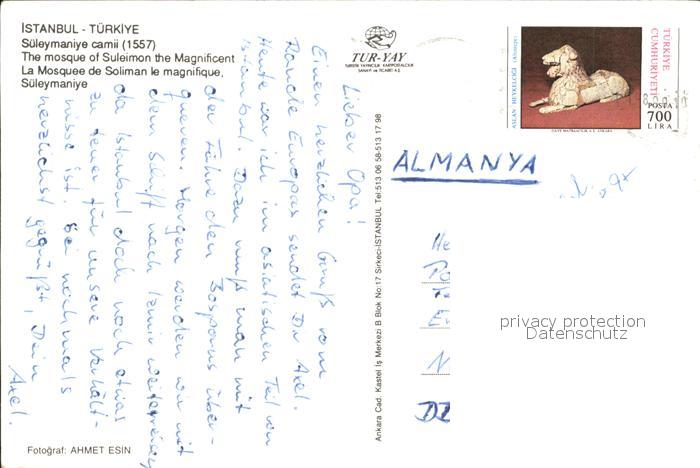 İSTANBUL - TÜRKİYE
Süleymaniye camii (1557)
The mosque of Suleimon the Magnificent
La Mosquee de Soliman le magnifique,
Süleymaniye
Lieber Opa!
Einen herzlichen Gruß vom
Rande Europas sendet Dir Axel.
Heute war ich im asiatischen Teil von
Istanbul. Dazu muß man mit
der Fähre den Bosporus über-
queren. Morgen werden wir mit
dem Schiff nach Izmir weiterreisen
da Istanbul doch noch etwas
zu teuer für unsere Verhält-
nisse ist. Sei nochmals
herzlichst gegrüßt, Dein
Axel.
Fotoğraf: AHMET ESİN
TUR-YAY
TURİSTİK YAYINCILIK KARTPOSTALCILIK
SANAYi ve TİCARET A.Ş.
Ankara Cad. Kastel İş Merkezi B Blok No:17 Sirkeci-İSTANBUL Tel:513 06 58-513 17 98
ASLAN HEYKELCİĞİ (Altıntepe)
TÜRKİYE
CUMHURİYETİ
POSTA
700
LİRA
ALMANYA
He
Po
E
N
DZ
privacy protection
Datenschutz